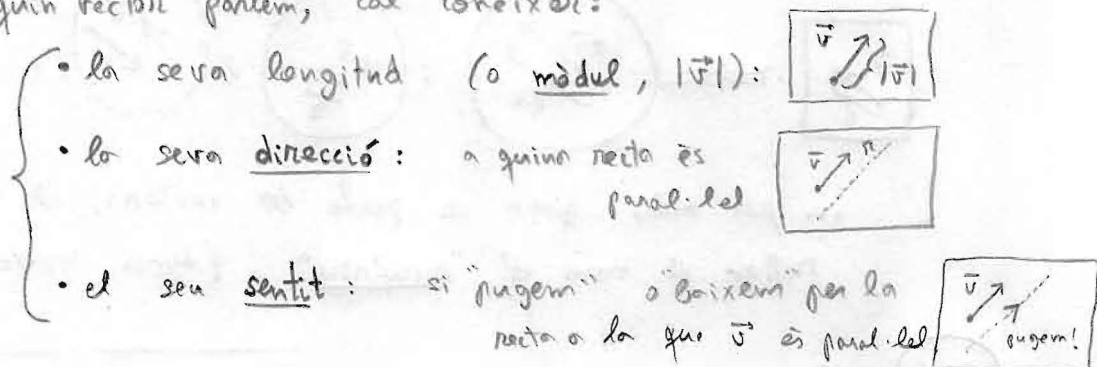 quin vector parlem, cal conèixer:
• la seva longitud (o mòdul, |v⃗|): v⃗ |v⃗|
• la seva direcció: a quina recta és v⃗ r
paral·lel
• el seu sentit: si "pugem" o baixem per la v⃗
recta a la que v⃗ és paral·lel pugem!